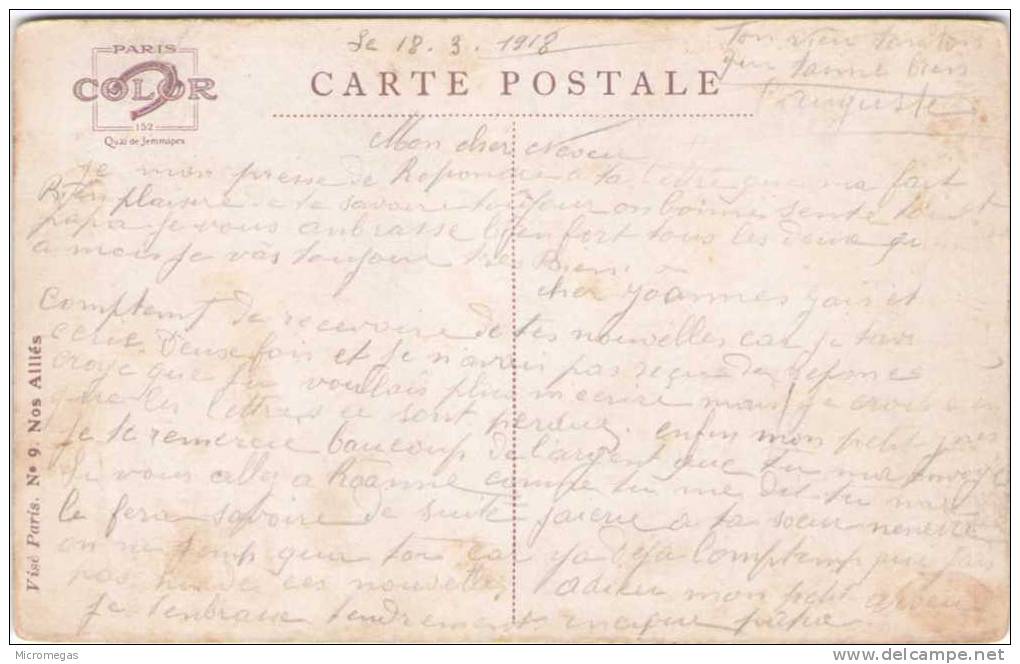 PARIS
COLOR
152
Quai de Jemmapes
Le 18.3.1918
CARTE POSTALE
Ton vieu tonton
qui tanme bien
auguste
Mon cher Neveu
Je mon presse de Reponce a ta lettre que ma fait
plaisire de te savoire toujour on bonne sente toi et
papa je vous anbrasse bien fort tous les deux
a moi je vas toujour tres bien.
cher Joannes jais et
comptemt de recevoire de tes nouvelles car je tavs
ecrie deux fois et je navais pas reçue de reponce
croye que tu voulais plus mecrire mais je crois
que les lettres ce sont perdue. enfin mon petit
je te remercie baucoup de l'argent que tu ma envoye
si vous alley a Roanne comme tu me dit tu me
le fera savoire de suite jaicrie a ta soeur
on me temp que toi car ya deja lomptemp que
pas de ces nouvelles adieu mon petit
je tenbrasse tendrement
Visé Paris. No 9. Nos Alliés
Micromegas
www.delcampe.net